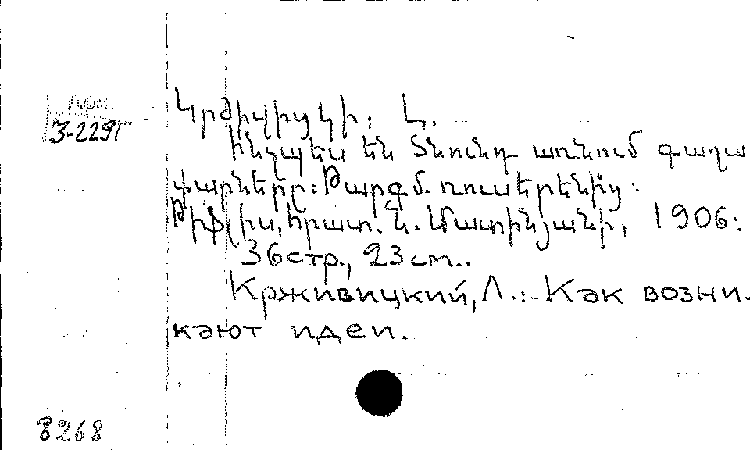 Арм.
3-229г
Կրժիվիցկի, Լ.
Ինչպես են ծնունդ առնում գաղա
փարները: Թարգմ. ռուսերենից:
Թիֆլիս, հրատ. Ն. Մատինյանի, 1906:
36стр., 23см..
Крживицкий, Л.:- Как возни.
кают идеи.
8268